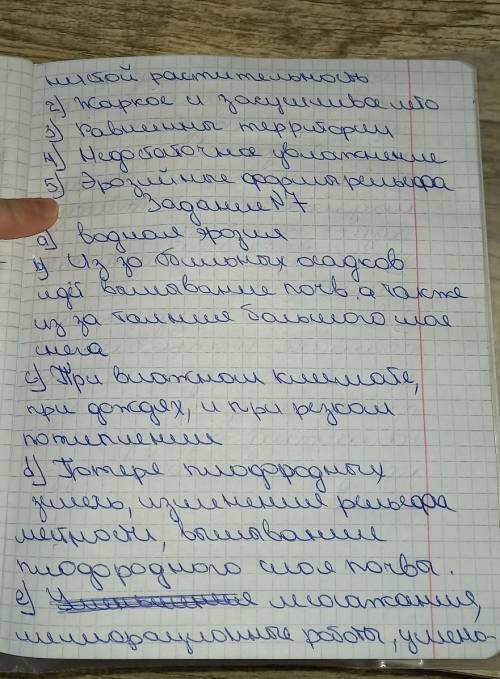 нистой растительность
2) Жаркое и засушливое лето
3) Равнинны территории
4) Недостаточное увлажнение
5) Эрозийные формы рельефа
Задание N7
a) водная эрозия
b) Из за больных осадков
идё вымывание почв. а также
из за таяние большого слоя
снега
c) При влажном климате,
при дождях, и при резком
потиплении
d) Потеря плодородных
земель, изменение рельефа
метности, вымывание
плодородного слоя почвы.
e)
мелиорационные работы, умень-